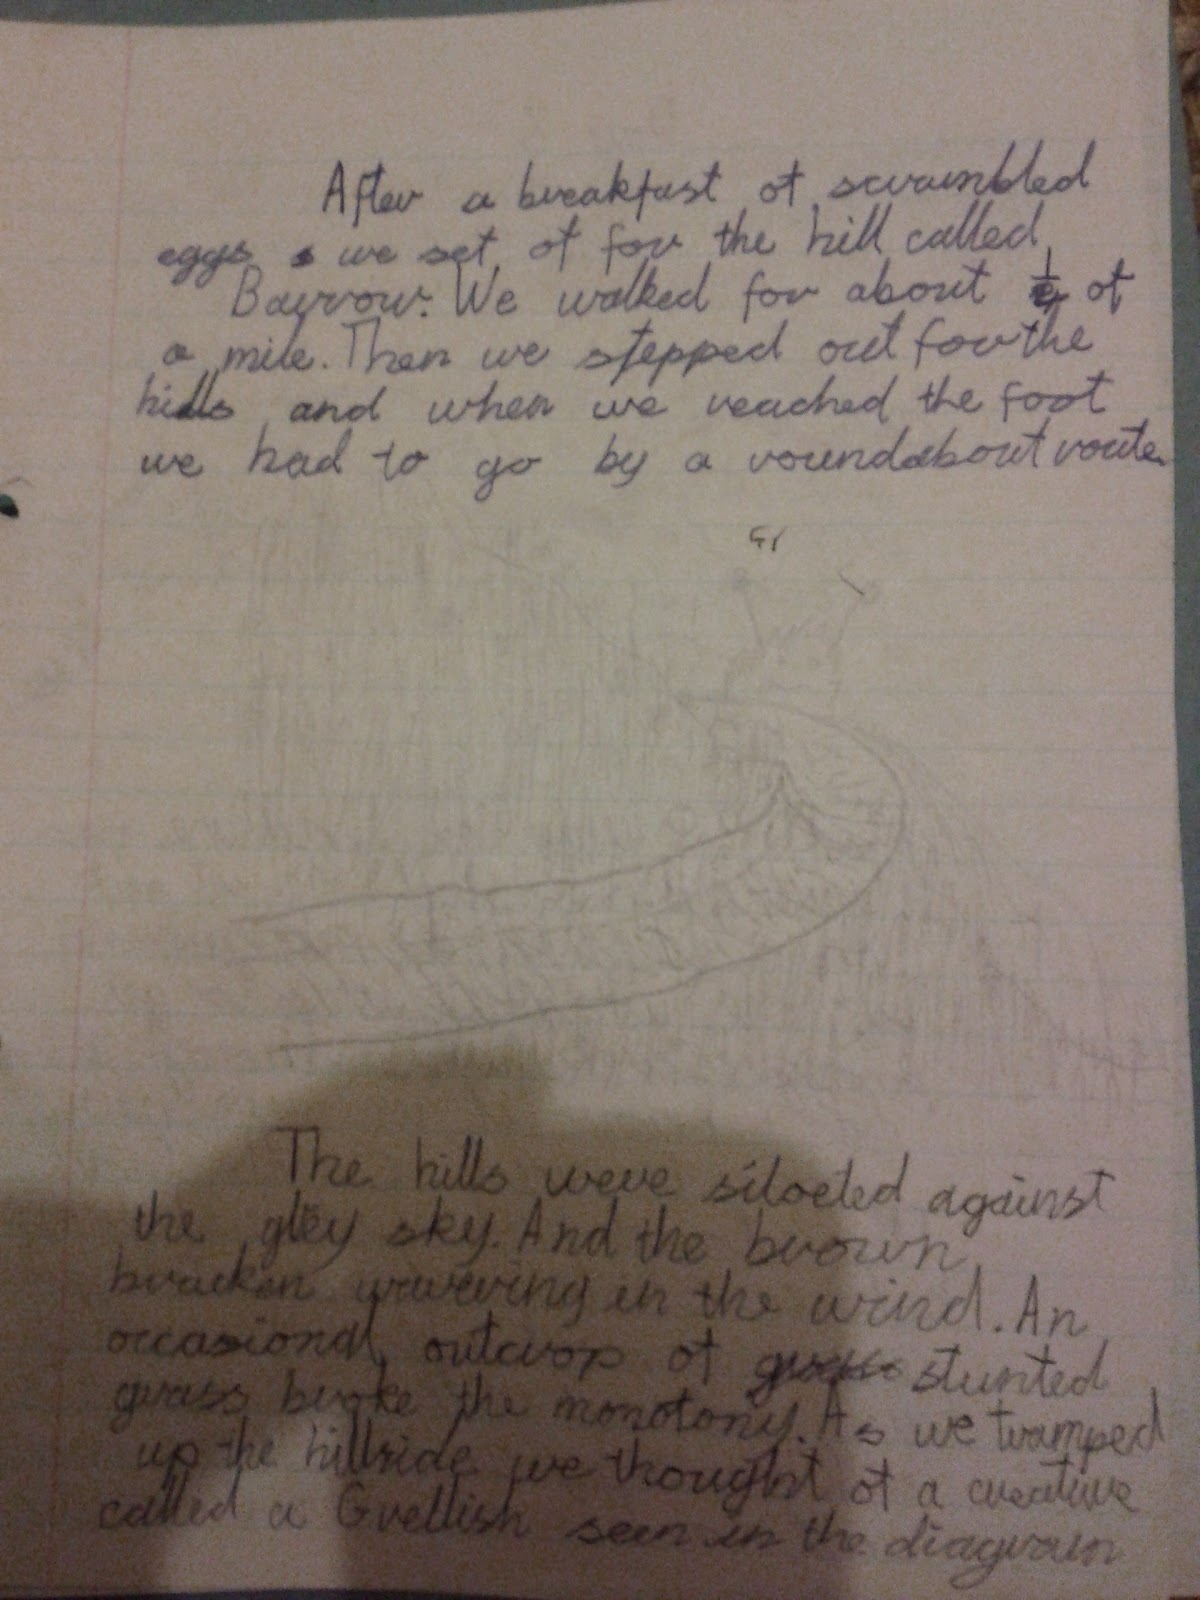 After a breakfast of scrambled
eggs we set of for the hill called
Barrow. We walked for about 1/4 of
a mile. Then we stepped out for the
hills and when we reached the foot
we had to go by a roundabout route.
The hills were siloeted against
the grey sky. And the brown
bracken wavering in the wind. An
occasional outcrop of grass stunted
grass broke the monotony. As we tramped
up the hillside we thought of a creature
called a Grellish seen in the diagram